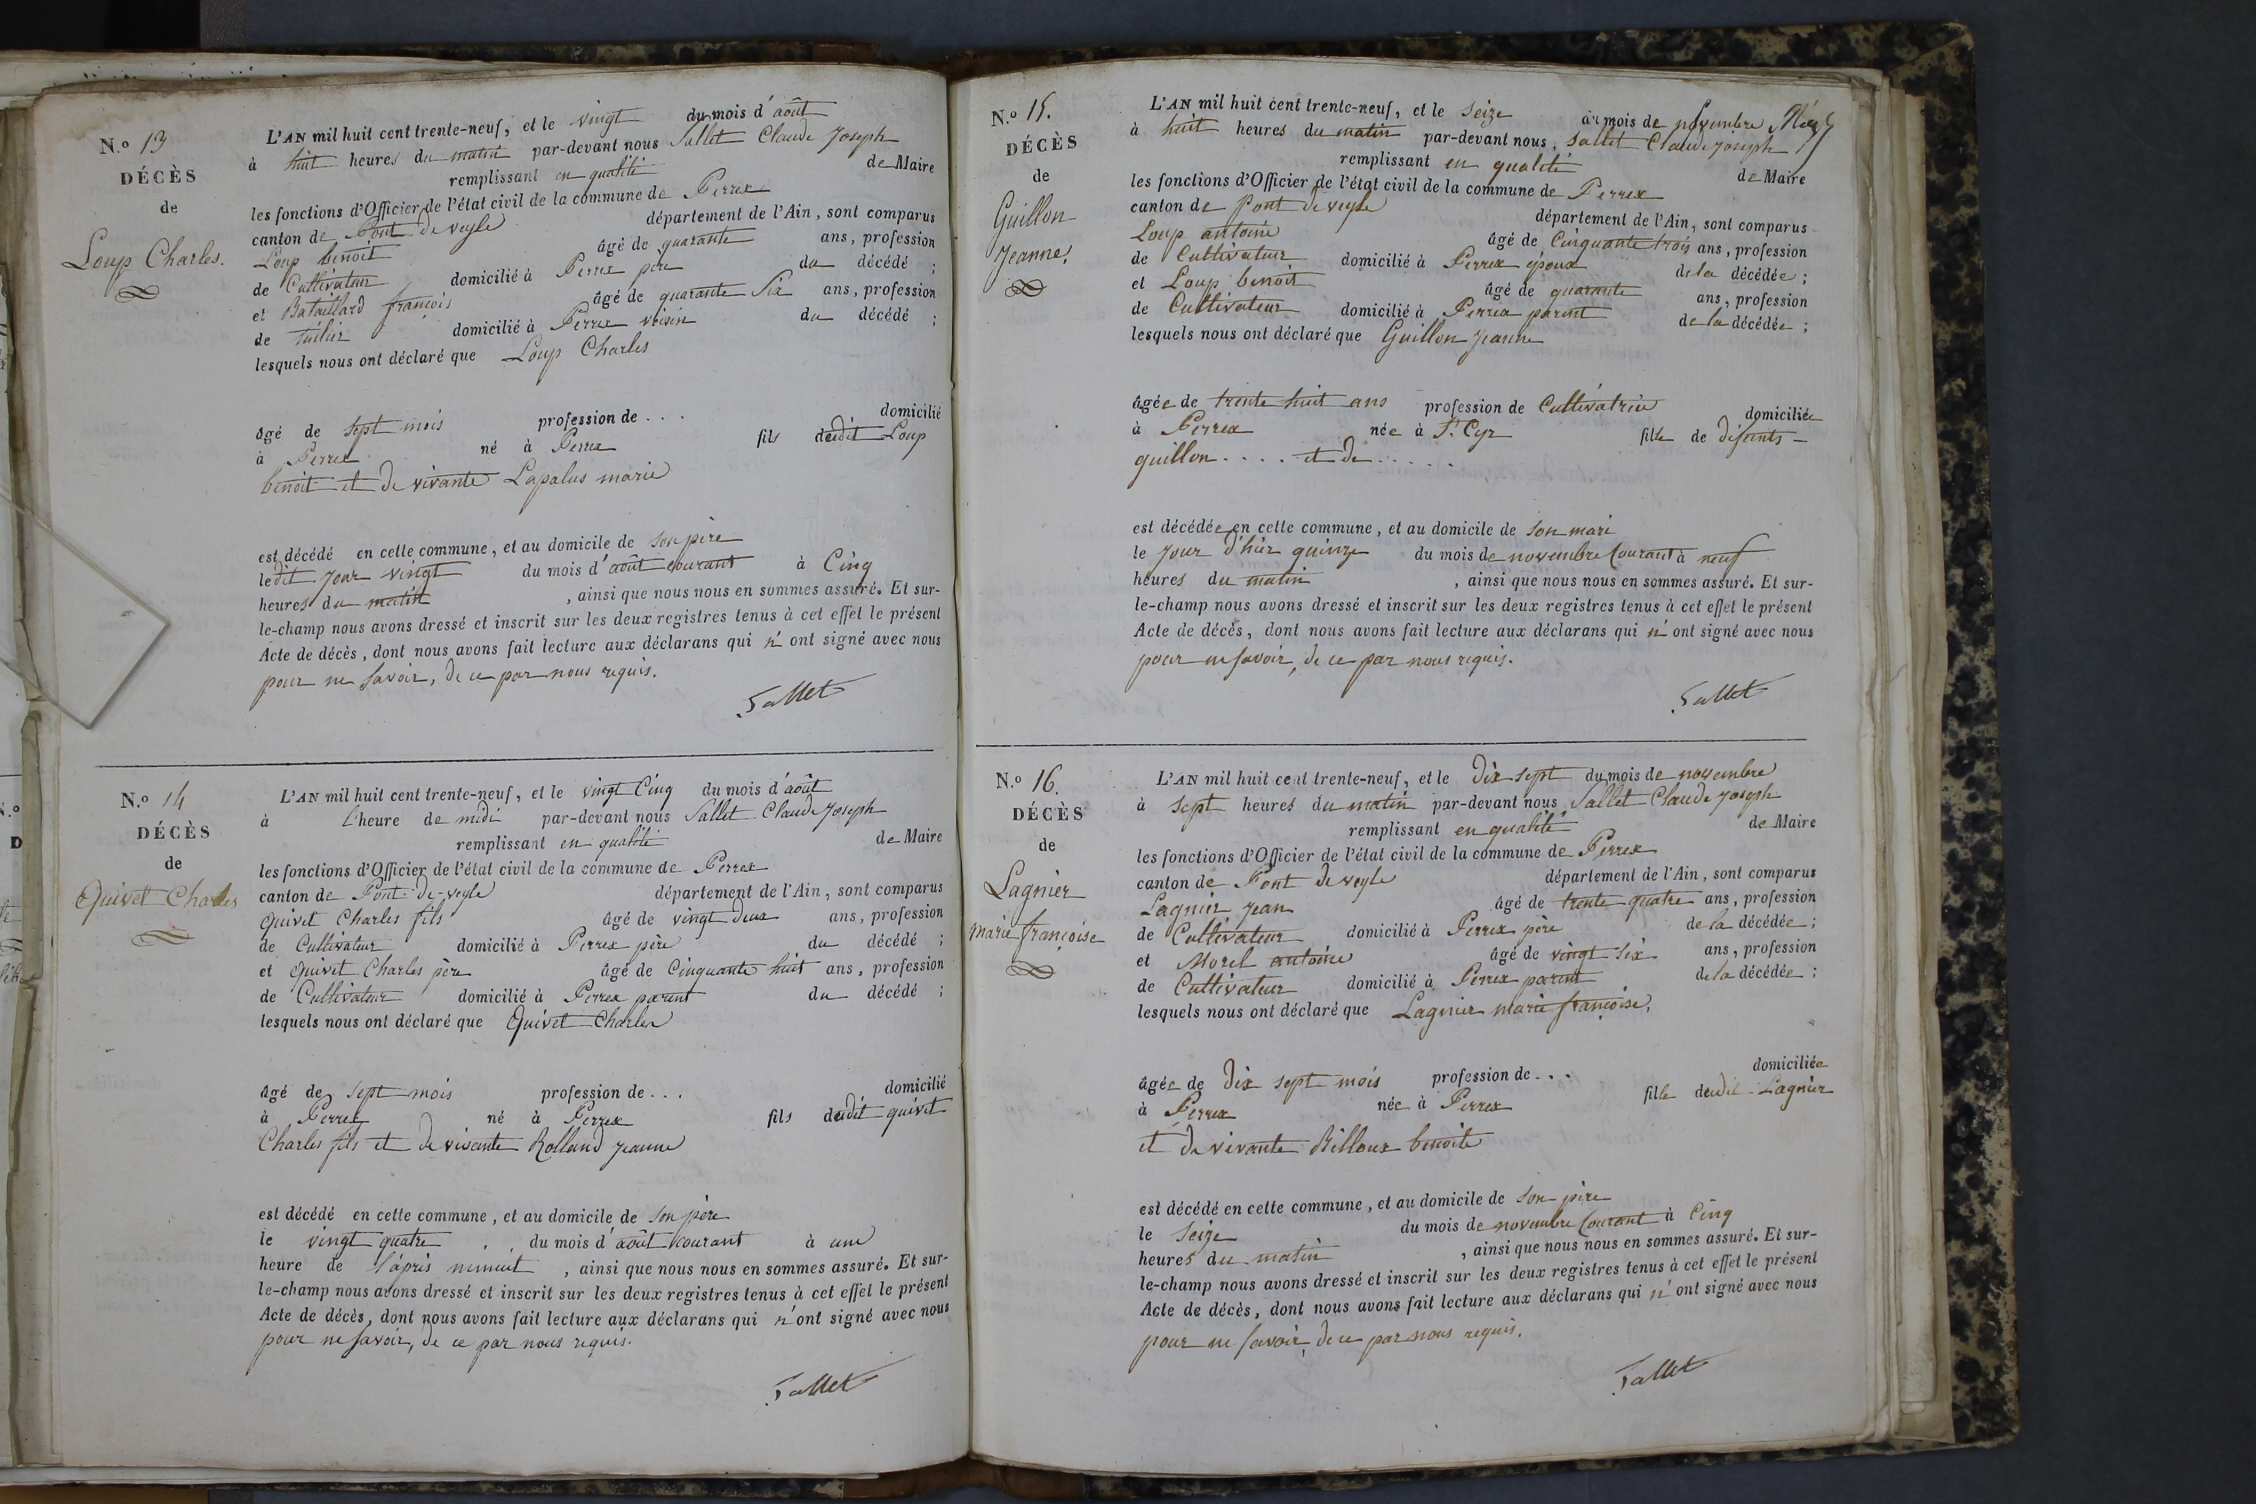 N.o 13
DÉCÈS
de
Loup Charles.
L'AN mil huit cent trente-neuf, et le vingt du mois d'août
à huit heures du matin par-devant nous Sallet Claude Joseph
remplissant en qualité de Maire
les fonctions d'Officier de l'état civil de la commune de Perrex
canton de Pont de veyle département de l'Ain, sont comparus
Loup benoit âgé de quarante ans, profession
de Cultivateur domicilié à Perrex père du décédé ;
et Bataillard françois âgé de quarante Six ans, profession
de tuilier domicilié à Perrex voisin du décédé ;
lesquels nous ont déclaré que Loup Charles
âgé de sept mois profession de . . . domicilié
à Perrex né à Perrex fils dudit Loup
benoit et de vivante Lapalus marie
est décédé en cette commune, et au domicile de son père
ledit jour vingt du mois d'août courant à Cinq
heures du matin , ainsi que nous nous en sommes assuré. Et sur-
le-champ nous avons dressé et inscrit sur les deux registres tenus à cet effet le présent
Acte de décès, dont nous avons fait lecture aux déclarans qui n'ont signé avec nous
pour ne savoir, de ce par nous requis.
Sallet
N.o 14
DÉCÈS
de
Quivet Charles
L'AN mil huit cent trente-neuf, et le vingt Cinq du mois d'août
à l'heure de midi par-devant nous Sallet Claude Joseph
remplissant en qualité de Maire
les fonctions d'Officier de l'état civil de la commune de Perrex
canton de Pont-de-veyle département de l'Ain, sont comparus
Quivet Charles fils âgé de vingt deux ans, profession
de Cultivateur domicilié à Perrex père du décédé ;
et Quivet Charles père âgé de Cinquante huit ans, profession
de Cultivateur domicilié à Perrex parent du décédé ;
lesquels nous ont déclaré que Quivet Charles
âgé de sept mois profession de . . . domicilié
à Perrex né à Perrex fils dudit quivet
Charles fils et de vivante Rolland jeanne
est décédé en cette commune, et au domicile de son père
le vingt quatre du mois d'août courant à une
heure de l'après minuit , ainsi que nous nous en sommes assuré. Et sur-
le-champ nous avons dressé et inscrit sur les deux registres tenus à cet effet le présent
Acte de décès, dont nous avons fait lecture aux déclarans qui n'ont signé avec nous
pour ne savoir, de ce par nous requis.
Sallet
N.o 15.
DÉCÈS
de
Guillon
Jeanne.
L'AN mil huit cent trente-neuf, et le seize du mois de novembre
à huit heures du matin par-devant nous, Sallet Claude Joseph
remplissant en qualité de Maire
les fonctions d'Officier de l'état civil de la commune de Perrex
canton de Pont de veyle département de l'Ain, sont comparus
Loup antoine âgé de Cinquante trois ans, profession
de Cultivateur domicilié à Perrex époux de la décédée ;
et Loup benoit âgé de quarante ans, profession
de Cultivateur domicilié à Perrex parent de la décédée ;
lesquels nous ont déclaré que Guillon Jeanne
âgée de trente huit ans profession de Cultivatrice domiciliée
à Perrex née à St Cyr fille de défunts
guillon . . . . et de . . . . .
est décédée en cette commune, et au domicile de son mari
le jour d'hier quinze du mois de novembre Courant à neuf
heures du matin , ainsi que nous nous en sommes assuré. Et sur-
le-champ nous avons dressé et inscrit sur les deux registres tenus à cet effet le présent
Acte de décès, dont nous avons fait lecture aux déclarans qui n'ont signé avec nous
pour ne savoir, de ce par nous requis.
Sallet
N.o 16.
DÉCÈS
de
Lagnier
marie françoise
L'AN mil huit cent trente-neuf, et le Dix sept du mois de novembre
à sept heures du matin par-devant nous Sallet Claude Joseph
remplissant en qualité de Maire
les fonctions d'Officier de l'état civil de la commune de Perrex
canton de Pont de veyle département de l'Ain, sont comparus
Lagnier Jean âgé de trente quatre ans, profession
de Cultivateur domicilié à Perrex père de la décédée ;
et Morel antoine âgé de vingt six ans, profession
de Cultivateur domicilié à Perrex parent de la décédée ;
lesquels nous ont déclaré que Lagnier marie françoise,
âgée de dix sept mois profession de . . . domiciliée
à Perrex née à Perrex fille dudit Lagnier
et de vivante Billoux benoite
est décédé en cette commune, et au domicile de son père
le Seize du mois de novembre Courant à Cinq
heures du matin , ainsi que nous nous en sommes assuré. Et sur-
le-champ nous avons dressé et inscrit sur les deux registres tenus à cet effet le présent
Acte de décès, dont nous avons fait lecture aux déclarans qui n'ont signé avec nous
pour ne savoir, de ce par nous requis.
Sallet